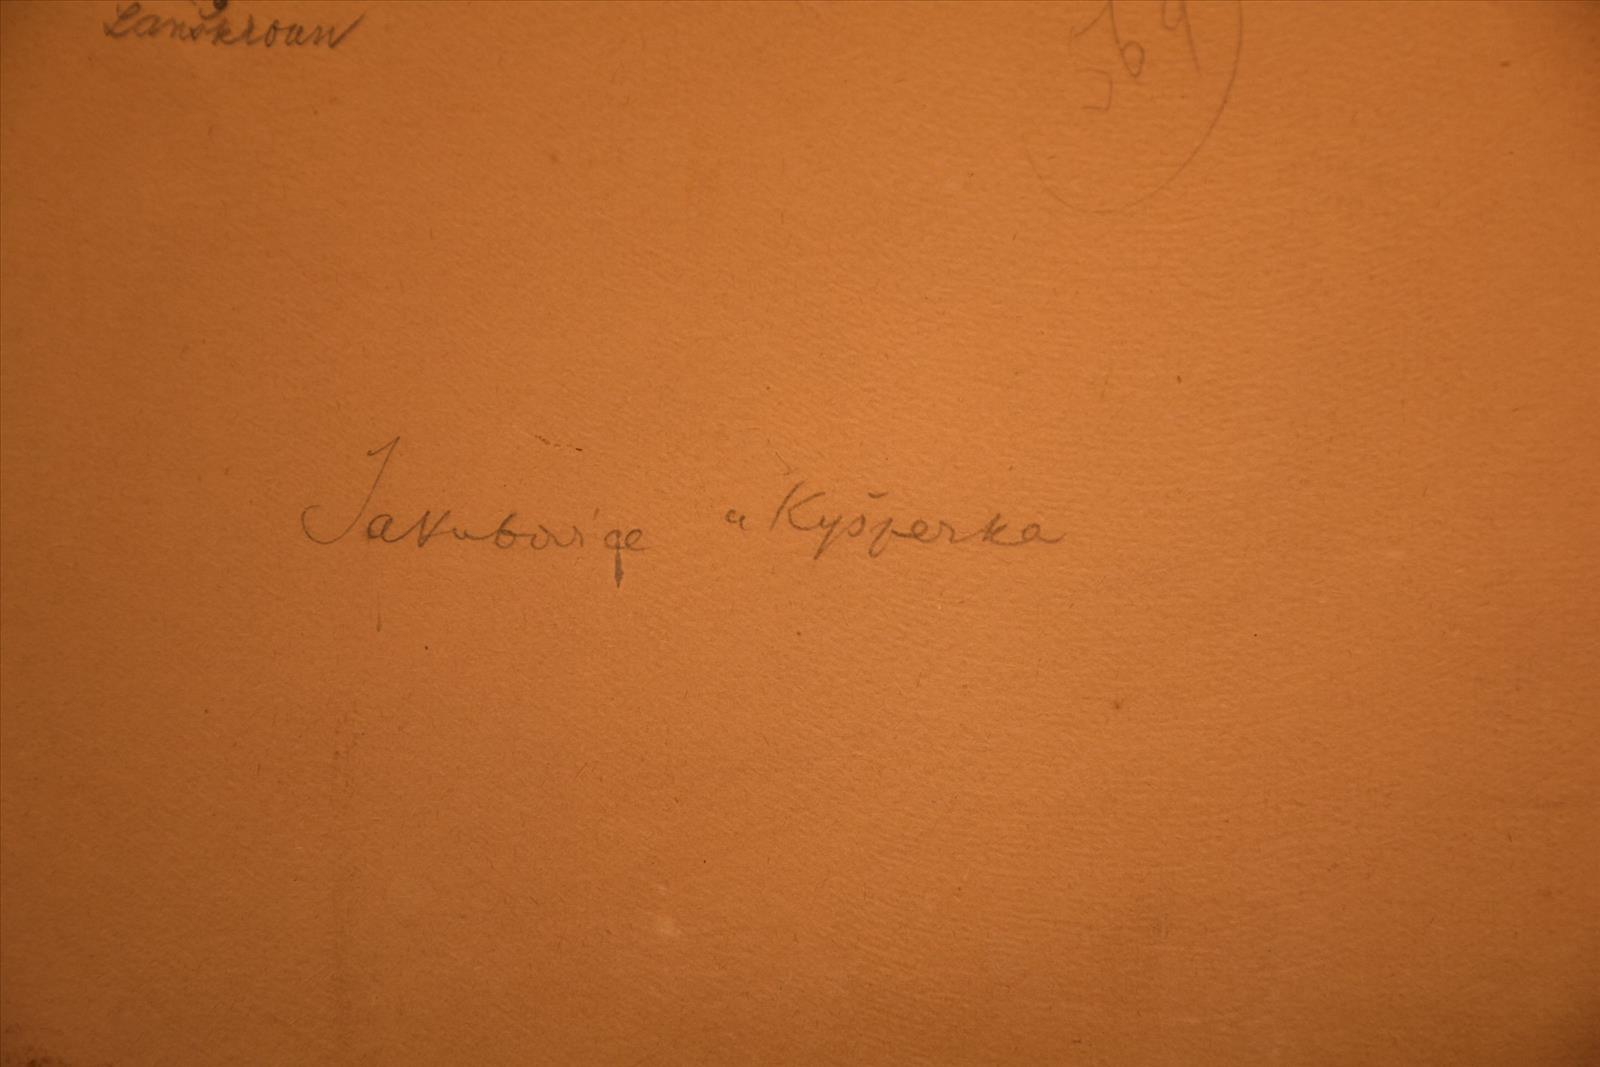 Lanškroun
169
Jakubovice u Kyšperka